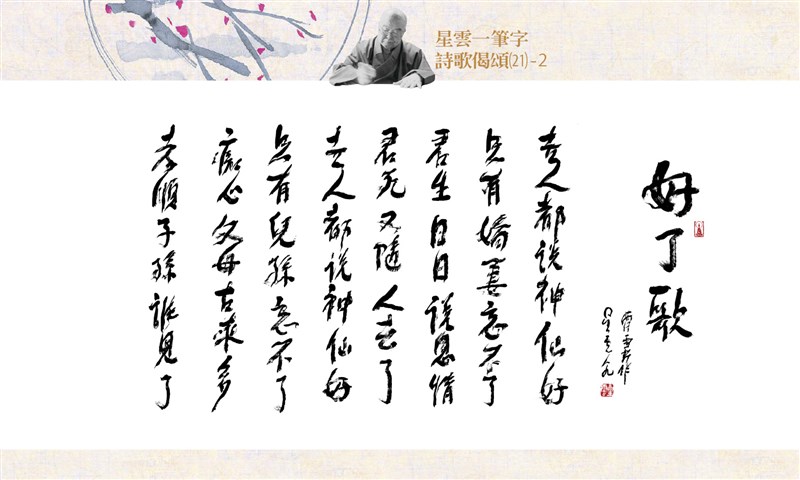 星雲一筆字
詩歌偈頌(21)-2
好了歌
曹雪芹作
星雲
世人都說神仙好
只有嬌妻忘不了
君生日日說恩情
君死又隨人去了
世人都說神仙好
只有兒孫忘不了
癡心父母古來多
孝順子孫誰見了